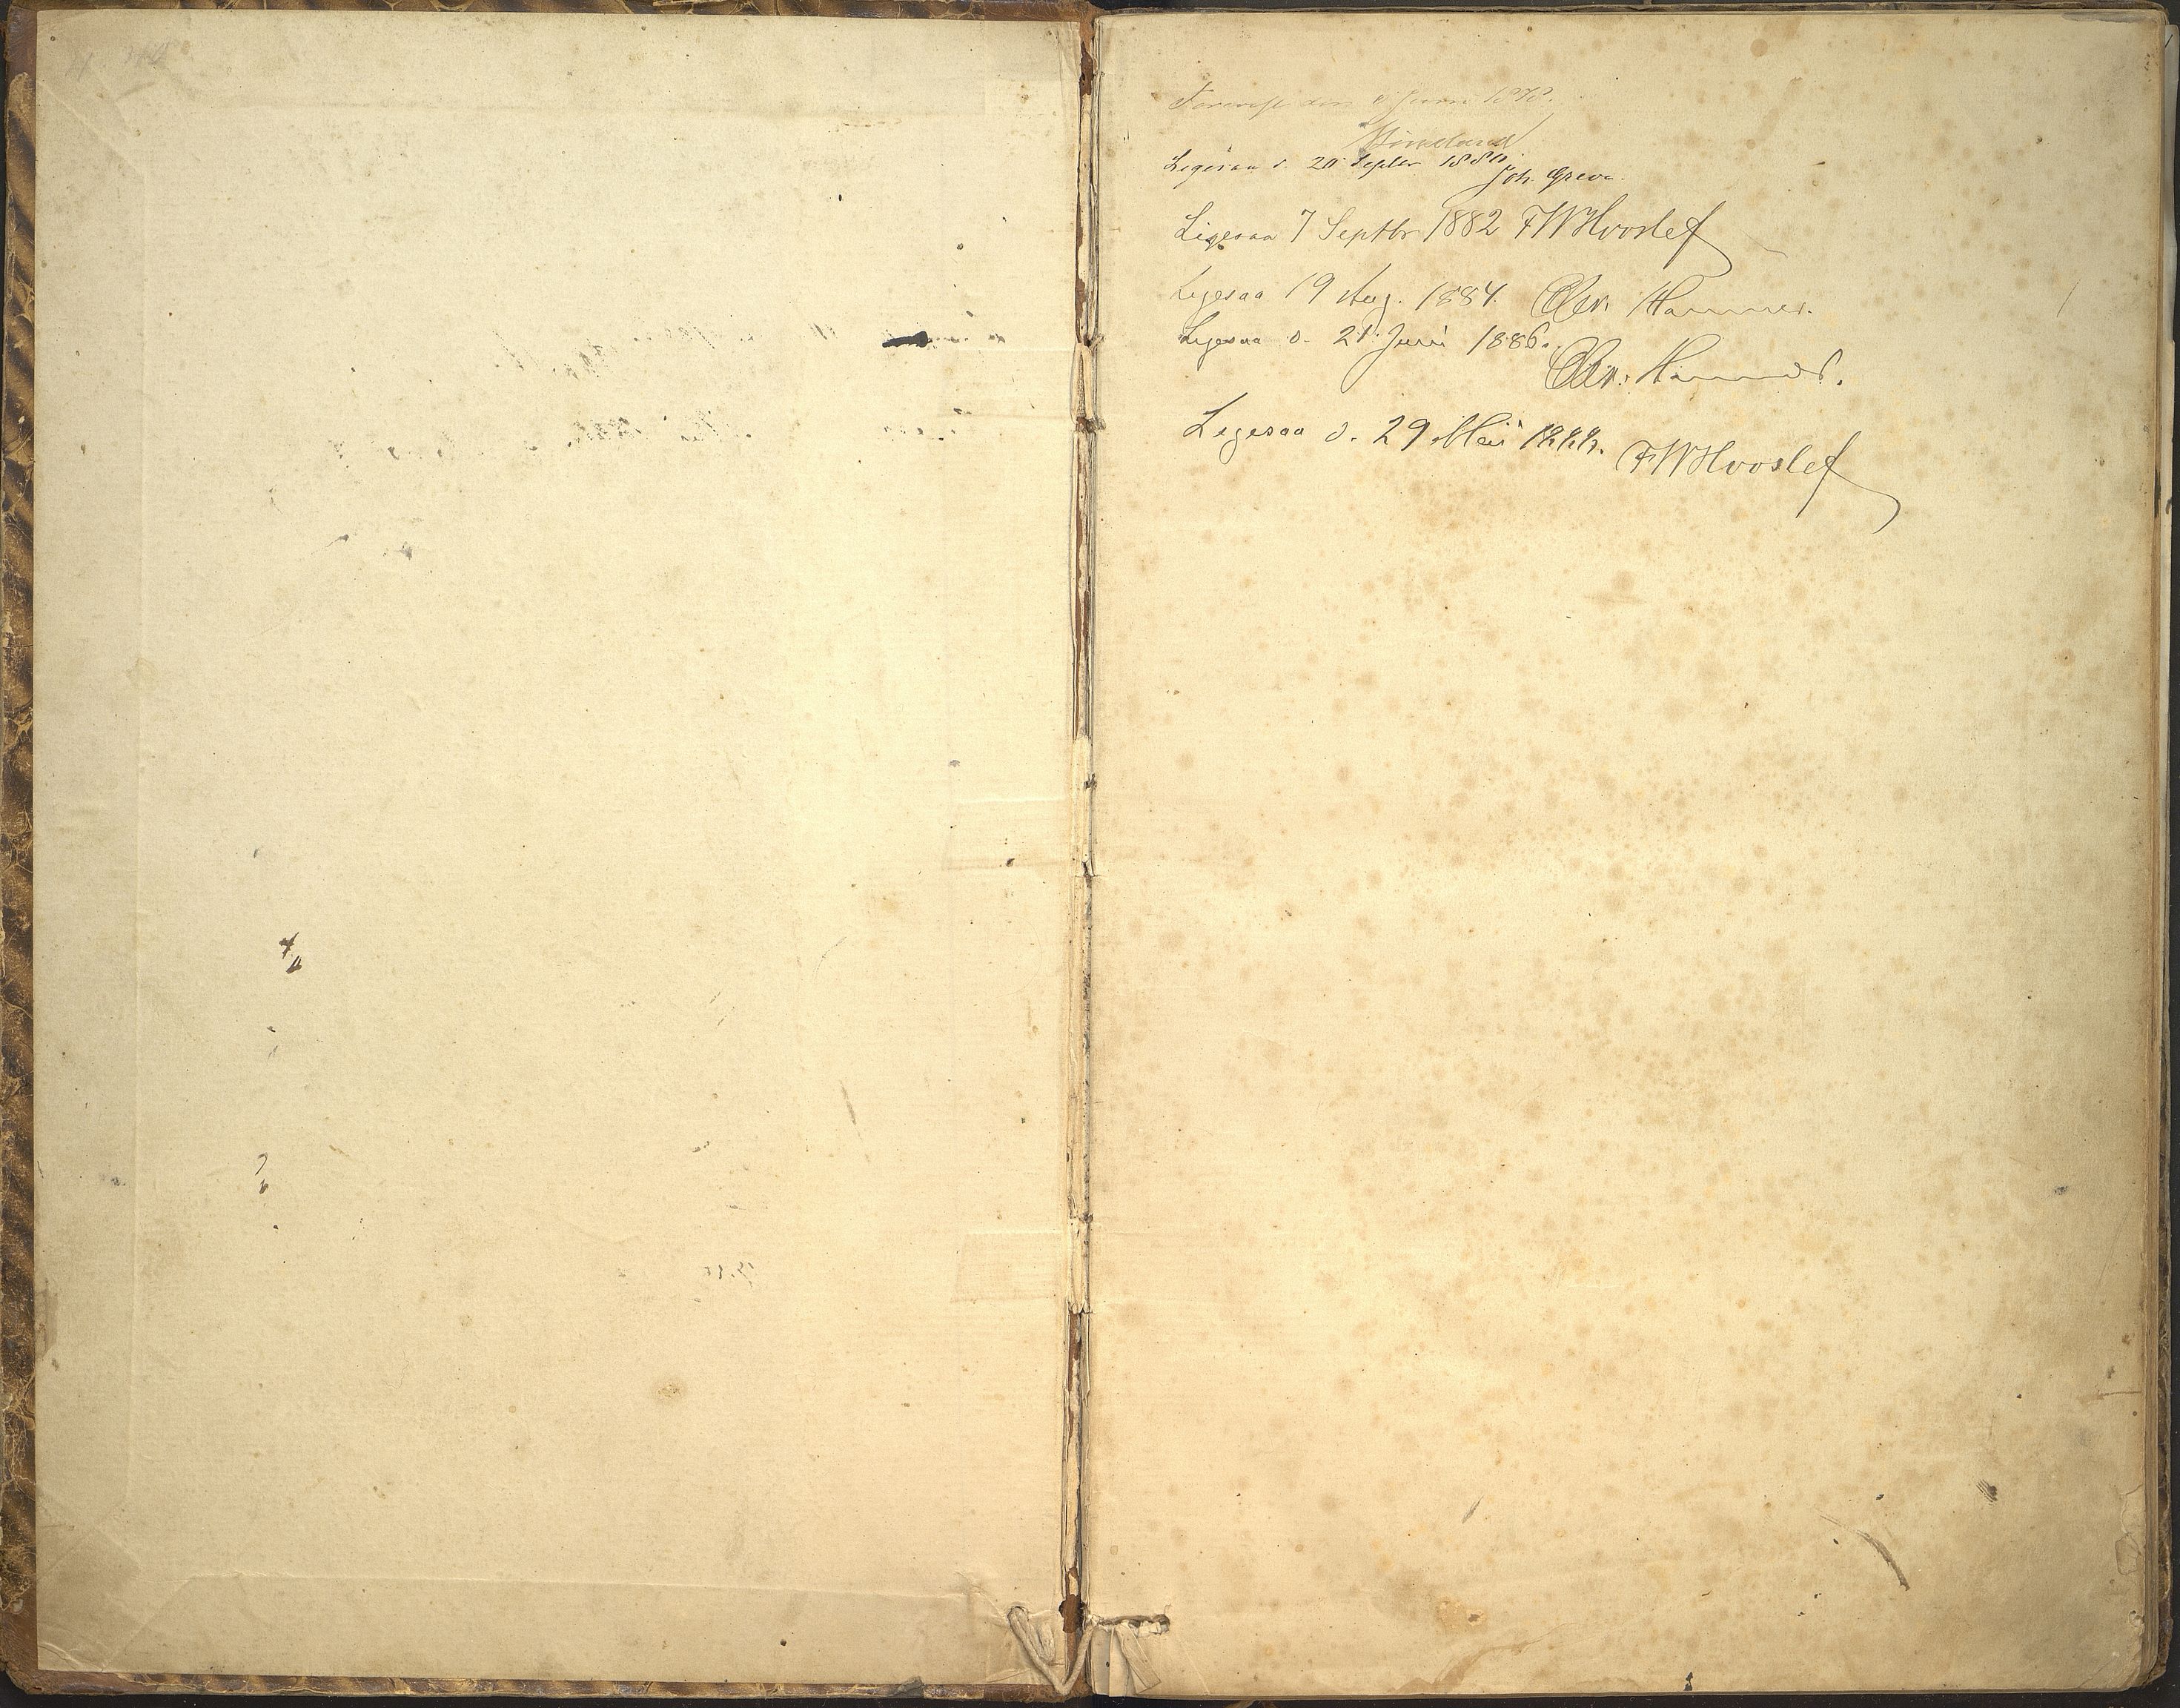 Forevist den Juni 1878.
Ligesaa d. 20 Septbr 1880.
Joh. Greve.
Ligesaa 7 Septbr 1882 FWHvoslef
Ligesaa 19 Aug. 1884. Chr. Hammer.
Ligesaa d. 21 Juni 1886.
Chr. Hammer.
Ligesaa d. 29 Mai 1888. FWHvoslef